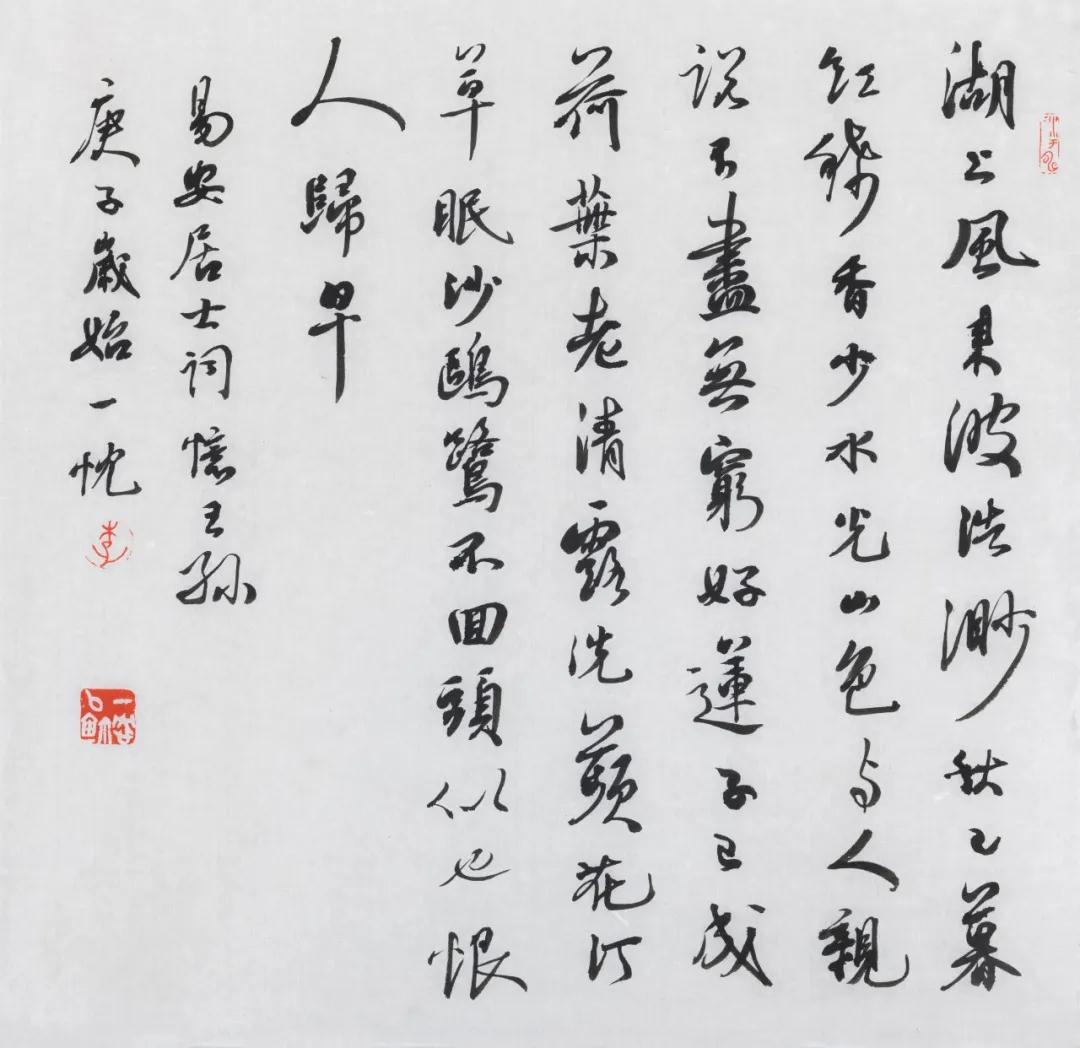 湖上風来波浩渺秋已暮
紅稀香少水光山色与人親
說不盡無窮好蓮子已成
荷葉老清露洗蘋花汀
草眠沙鷗鷺不回頭似也恨
人歸早
易安居士詞憶王孫
庚子歲始一忱
李